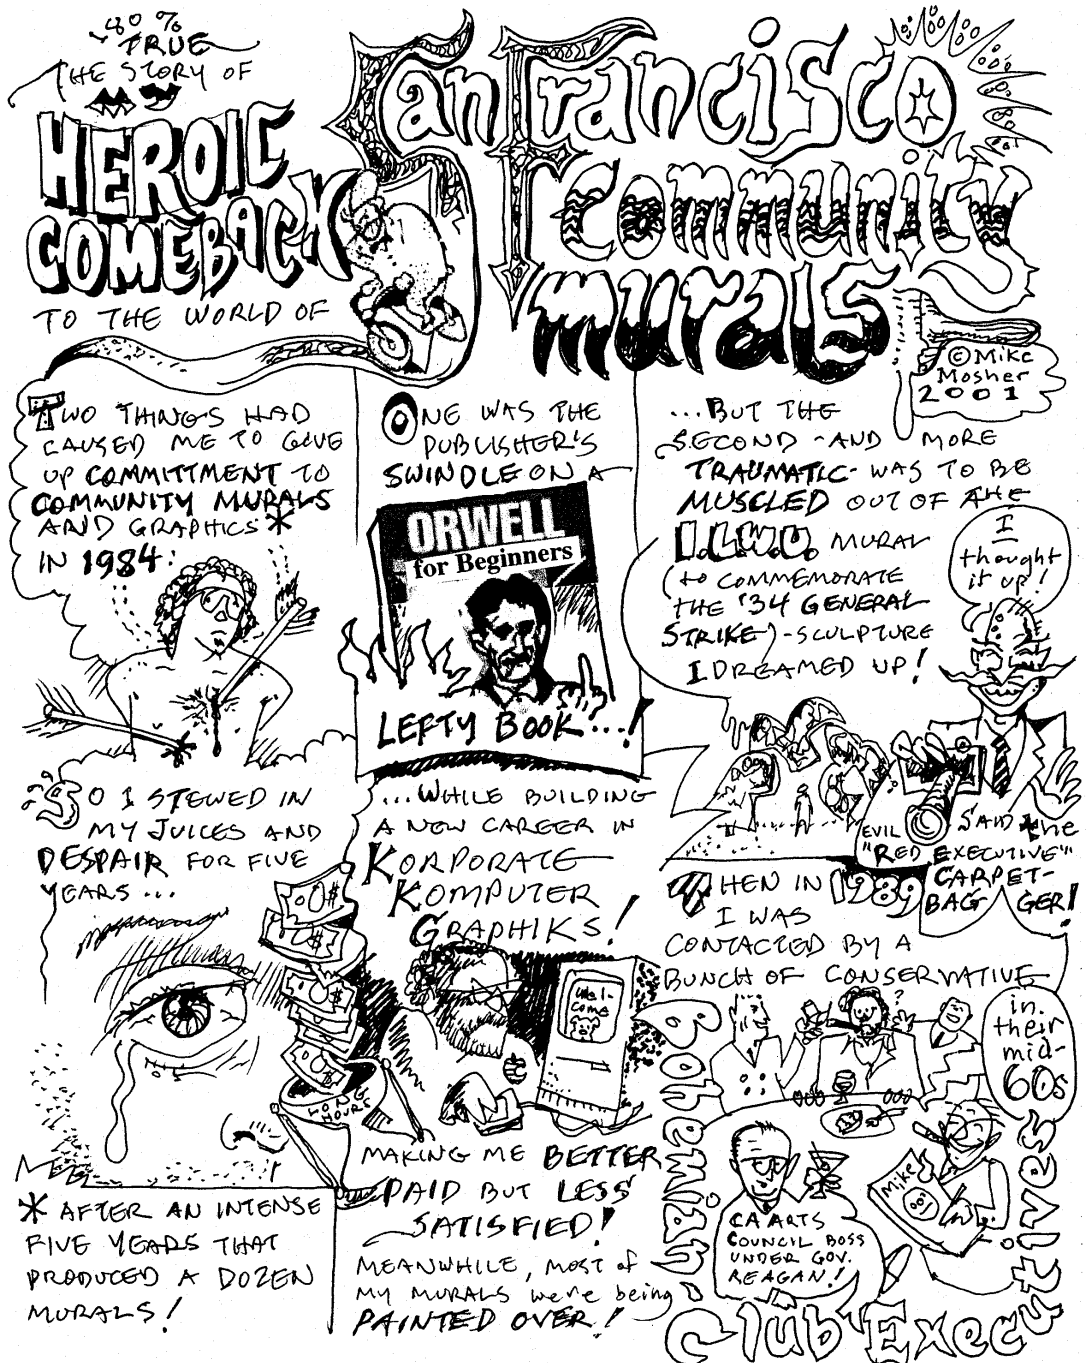 80%
TRUE
THE STORY OF
HEROIC
COMEBACK
TO THE WORLD OF
San Francisco
Community
Murals
© Mike
Mosher
2001
TWO THINGS HAD
CAUSED ME TO GIVE
UP COMMITTMENT TO
COMMUNITY MURALS
AND GRAPHICS*
IN 1984:
ONE WAS THE
PUBLISHER'S
SWINDLE ON A
ORWELL
for Beginners
LEFTY BOOK...!
...BUT THE
SECOND - AND MORE
TRAUMATIC - WAS TO BE
MUSCLED OUT OF THE
I.L.W.U. MURAL
(to COMMEMORATE
THE '34 GENERAL
STRIKE) - SCULPTURE
I DREAMED UP!
I
thought
it up!
SAID the
EVIL
"RED EXECUTIVE"
CARPET-
BAGGER!
SO I STEWED IN
MY JUICES AND
DESPAIR FOR FIVE
YEARS...
...WHILE BUILDING
A NEW CAREER IN
KORPORATE
KOMPUTER
GRAPHIKS!
Wel-
come
LONG
HOURS
MAKING ME BETTER
PAID BUT LESS
SATISFIED!
MEANWHILE, MOST of
MY MURALS were being
PAINTED OVER!
* AFTER AN INTENSE
FIVE YEARS THAT
PRODUCED A DOZEN
MURALS!
THEN IN 1989
I WAS
CONTACTED BY A
BUNCH OF CONSERVATIVE
Bohemian
Club Executives
in
their
mid-
60s
Mike
CA ARTS
COUNCIL BOSS
UNDER GOV.
REAGAN!